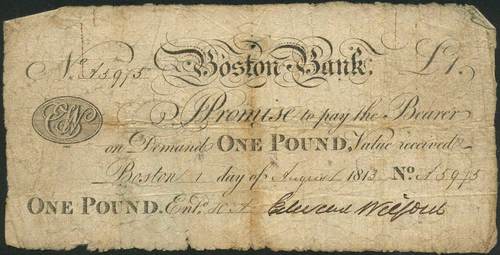 No. A5975 Boston Bank. £1.
EW
I Promise to pay the Bearer
on Demand ONE POUND. Value received
Boston 1 day of August 1813 No. A5975
ONE POUND. Entd. H A Edward Welford